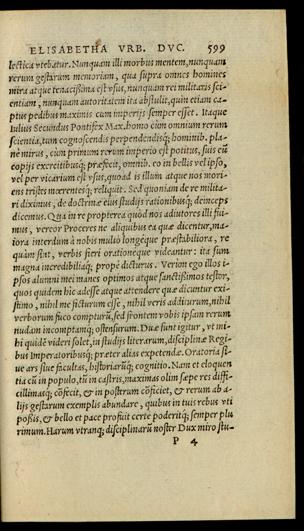 ELISABETHA VRB. DVC. 599
lectica vtebatur. Nunquam illi morbus mentem, nunquam
rerum gestarum memoriam, qua supra omnes homines
mira atque tenacissima est vsus, nunquam rei militaris sci-
entiam, nunquam autoritatem ita abstulit, quin etiam ca-
ptus pedibus maximis cum imperijs semper esset. Itaque
Iulius Secundus Pontifex Max. homo cùm omnium rerum
scientia, tum cognoscendis perpendendisq; hominib. pla-
nè mirus, cùm primum rerum imperio est potitus, suis eū
copijs exercitibusq; præfecit, omnib. eo in bellis vel ipso,
vel per vicarium est vsus, quoad is illum atque nos mœri-
ens tristes mœrentesq; reliquit. Sed quoniam de re milita-
ri diximus, de doctrinæ eius studijs rationibusq; deinceps
dicemus. Qua in re propterea quòd nos adiutores illi fui-
mus, vereor Proceres ne aliquibus ea quæ dicentur, ma-
iora interdum à nobis multo longéque præstabiliora, re
quàm sint, verbis fieri orationeque videantur: ita sum
magna incredibiliaq; propè dicturus. Verùm ego illos i-
psos alumni mei manes optimos atque sanctißimos testor,
quos quidem hîc adesse atque attendere quæ dicuntur exi-
stimo, nihil me ficturum esse, nihil veris additurum, nihil
verborum fuco compturū, sed frontem vobis ipsam rerum
nudam incomptamq; ostensurum. Duæ sunt igitur, vt mi-
hi quidē videri solet, in studijs literarum, disciplinæ Regi-
bus Imperatoribusq; præter alias expetendæ. Oratoria si-
ue ars siue facultas, historiarūq; cognitio. Nam et eloquen
tia cū in populo, tū in castris, maximas olim sæpe res diffi-
cillimasq; cōfecit, & in postrerum cōficiet, & rerum ab a-
lijs gestarum exemplis abundare, quibus in tuis rebus vti
poßis, & bello et pace profuit certe poderitq; semper plu
rimum. Harum vtranq; disciplinarū noster Dux miro stu-
P 4